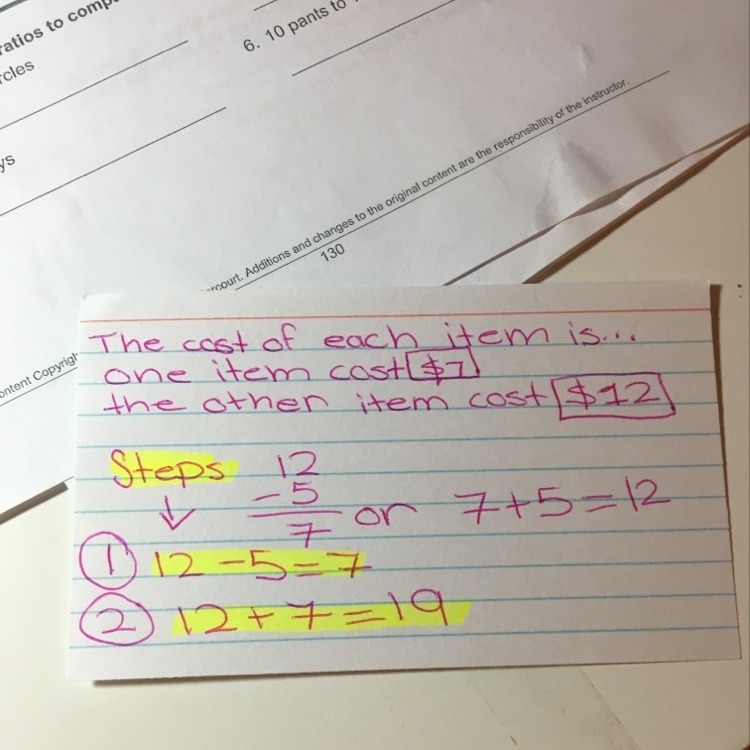 ratios to comp
rcles
6. 10 pants to
ys
rcourt. Additions and changes to the original content are the responsibility of the instructor.
130
ontent Copyrigh
The cost of each item is...
one item cost $7
the other item cost $12
Steps
12
-5
7
or 7+5=12
1 12-5=7
2 12+7=19